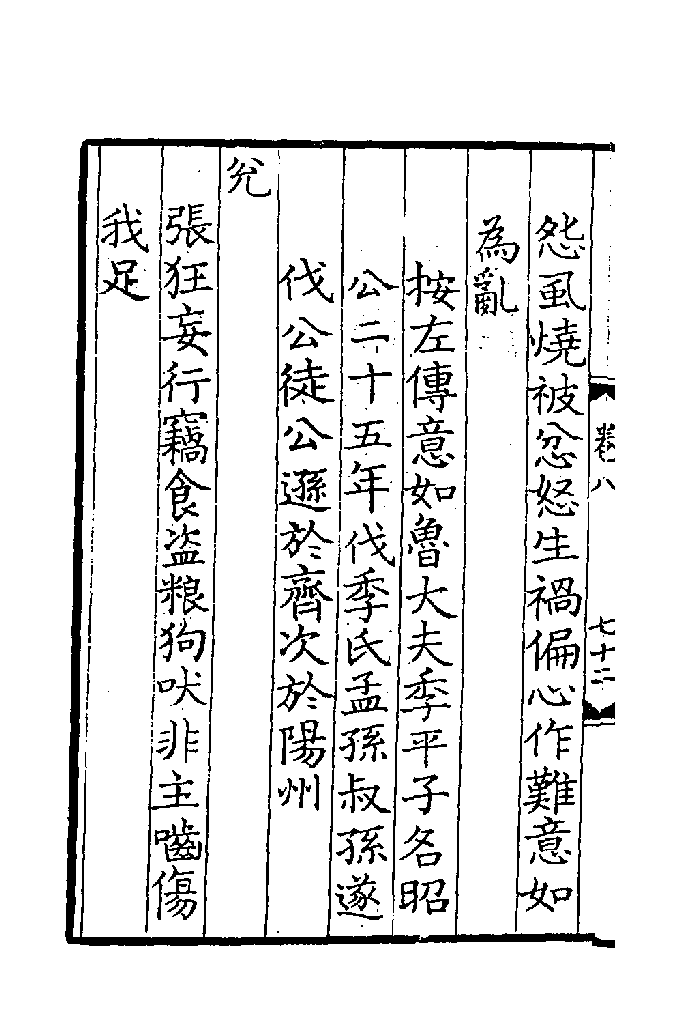 怨虱燒被忿怒生禍偏心作難意如
為亂
按左傳意如魯大夫季平子名昭
公二十五年伐季氏孟孫叔孫遂
伐公徒公遜於齊次於陽州
兊
張狂妄行竊食盜粮狗吠非主嚙傷
我足
卷八
七十二